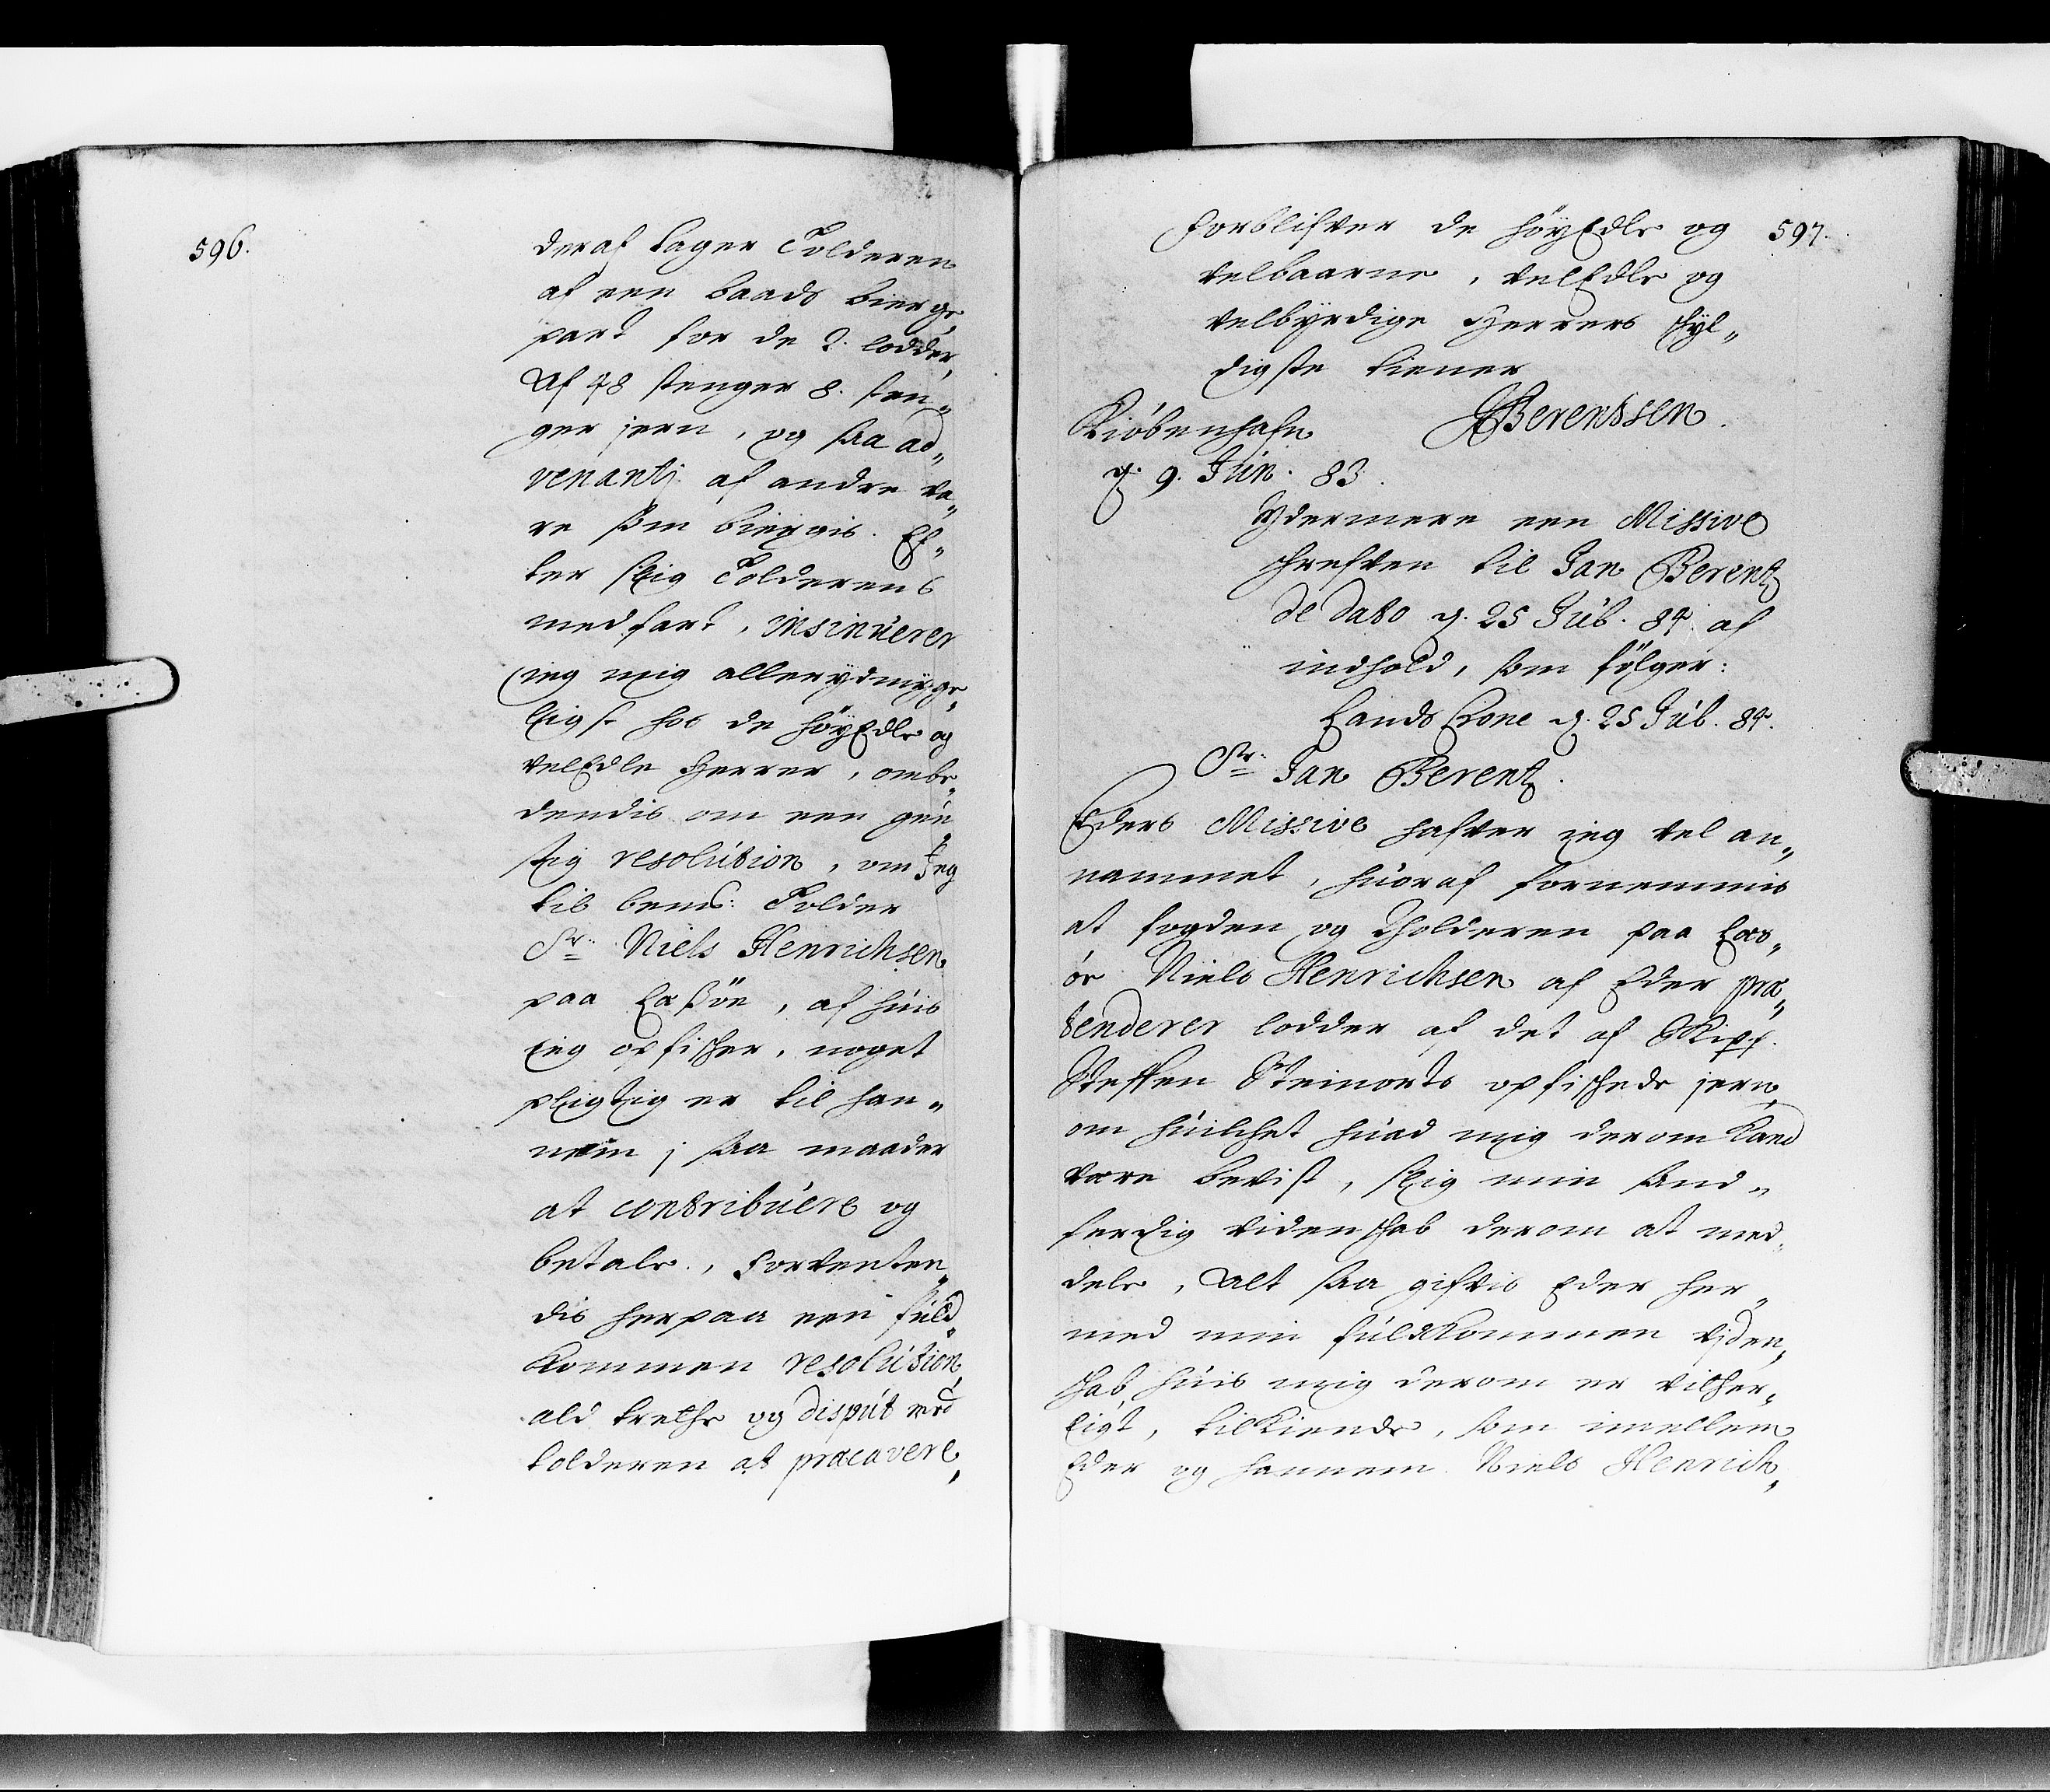 596.
deraf tager Tolderen
af een baads bierge
part for de 2. lodder,
Af 48 stenger 8. sten„
ger jern, og saa ad„
venantj af andre va„
re som biergis. Ef„
ter slig Tolderens
medfart, insinuerer
ieg mig allerydmyge„
ligst hos de HöyEdle og
VelEdle Herrer, ombe„
dendis om een gun„
stig resolution, om Jeg
til bem: Tolder
Sr. Niels Henrichsen
paa Læssöe, af huis
ieg opfisher, noget
pligtig er til han„
nem j saa maader
at contribuere og
betale, forventen„
dis herpaa een fuld„
kommen resolution,
ald trette og disput med
tolderen at præcavere,
597.
Forblifver de HöyEdle og
Velbaarne, VelEdle og
Velbyrdige Herrers skyl„
digste tiener
Kiöbenhafn JBerentssen.
d. 9. Jun. 83.
Ydermere een Missive
skrefven til Jan Berentz
de dato d. 25 Jul. 84 af
indhold, som fölger:
Lands Crone d. 25 Jul. 84.
Sr. Jan Berentz.
Eders Missive hafver ieg vel an„
nammet, huoraf fornemmis
at fogden og Tholderen paa Læs„
öe Niels Henrichsen af Eder præ„
tenderer lodder af det af Skipr.
Steffen Steinorts opfishede jern,
om huilchet huad mig derom kand
være bevist, slig min sand„
ferdig videnskab derom at med„
dele, Alt saa gifvis Eder her„
med min fuldkommen viden„
skab, huis mig derom er vitter„
ligt, tilkiende, som imellem
Eder og hannem Niels Henrich„